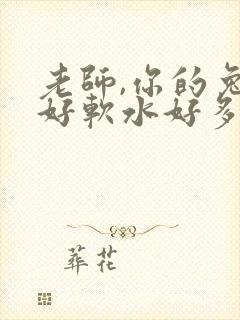 老師,你的兔
好軟水好多
葬花